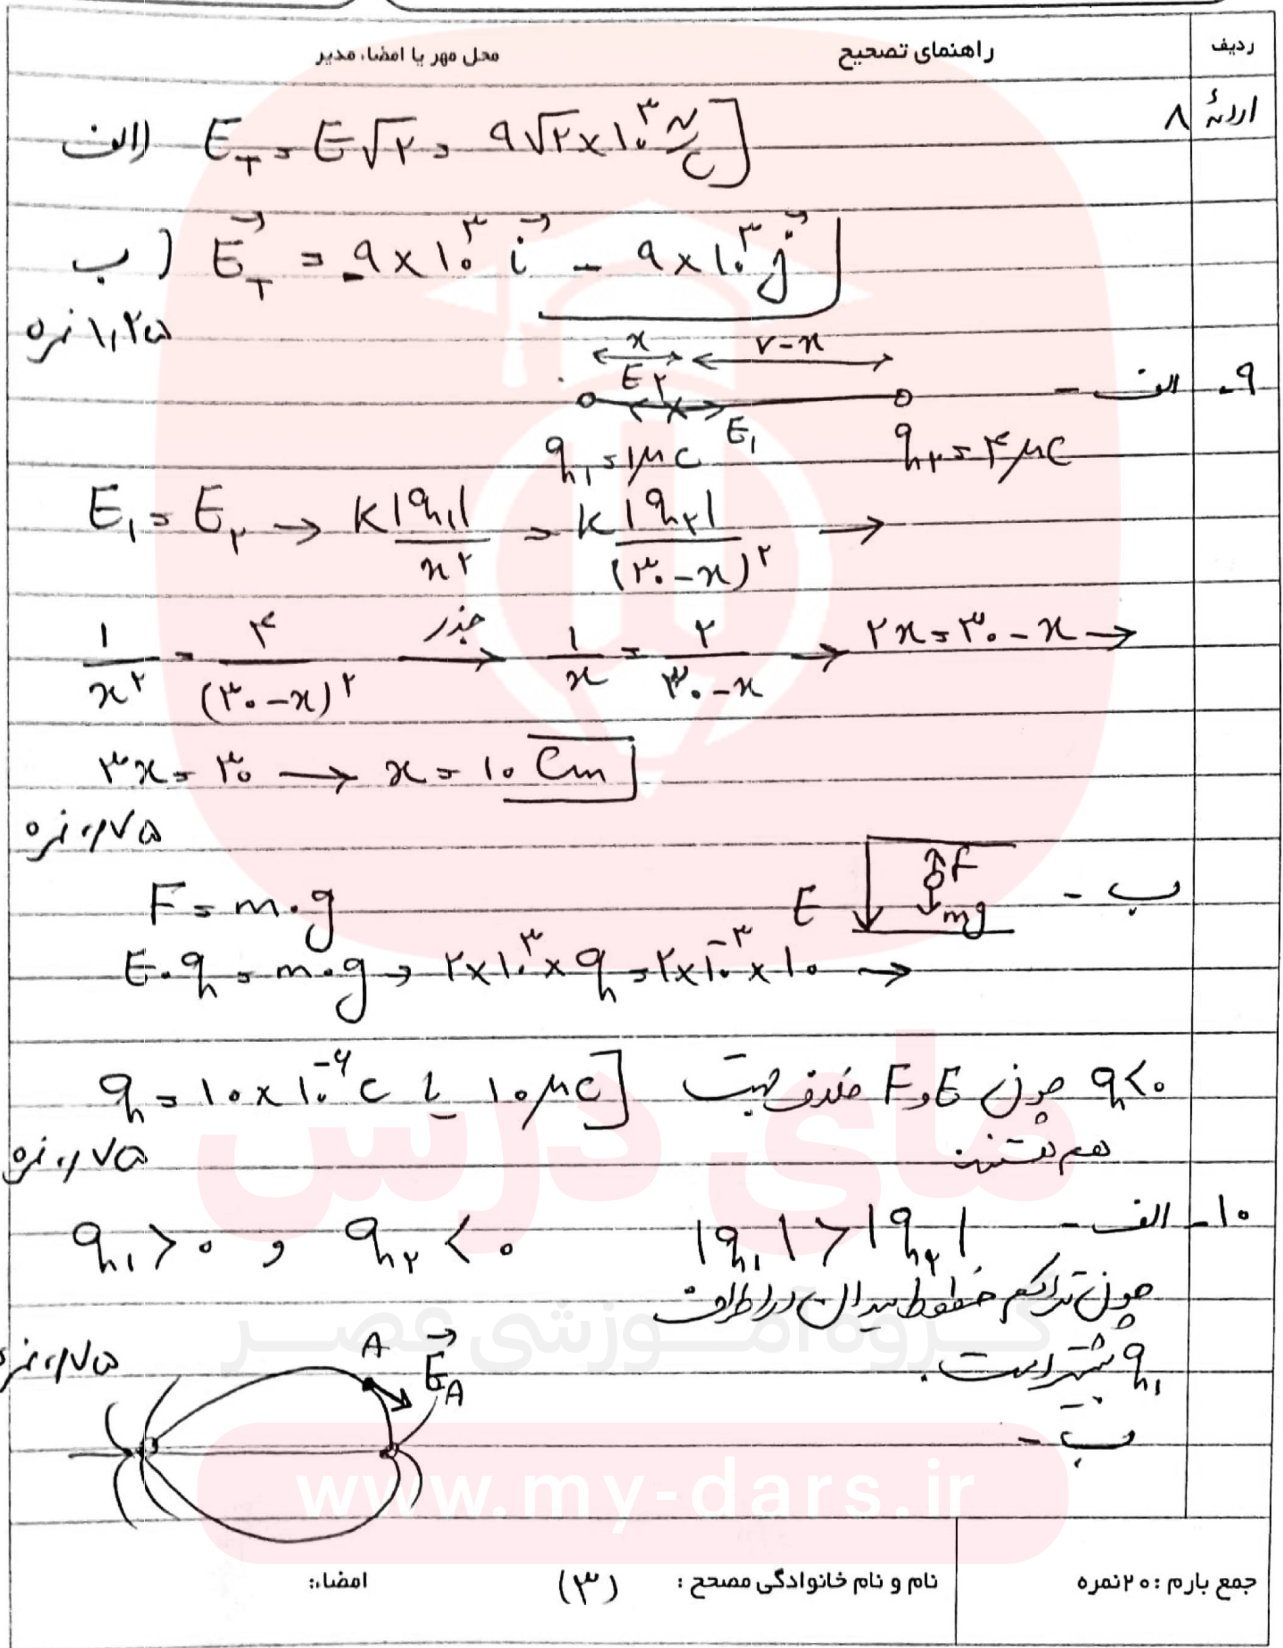 ردیف
راهنمای تصحیح
محل مهر یا امضاء مدیر
ادامهٔ ۸
الف) E_T = E√۲ = ۹√۲×۱۰^۳ N/C
ب) E_T = -۹×۱۰^۳ i - ۹×۱۰^۳ j
۱,۲۵ نمره
x r-x
۹- الف -
E۲ E۱
q۱ = ۱μC q۲ = ۴μC
E۱ = E۲ → k|q۱|/x^۲ = k|q۲|/(۳۰-x)^۲ →
۱/x^۲ = ۴/(۳۰-x)^۲ جذر → ۱/x = ۲/(۳۰-x) → ۲x = ۳۰-x →
۳x = ۳۰ → x = ۱۰ Cm
۰,۷۵ نمره
ب - E F mg
F = m.g
E.q = m.g → ۲×۱۰^۳×q = ۲×۱۰^-۳×۱۰ →
q = ۱۰×۱۰^-۶ C یا ۱۰μC q<۰ چون E و F خلاف جهت
هم هستند
۰,۷۵ نمره
۱۰- الف - |q۱| > |q۲| q۱ > ۰ و q۲ < ۰
چون تراکم خطوط میدان در اطراف
q۱ بیشتر است.
۰,۷۵ نمره
ب -
A E_A
مای درس
گروه آموزشی عصر
www.my-dars.ir
جمع بارم : ۲۰ نمره
نام و نام خانوادگی مصحح :
(۳)
امضاء: